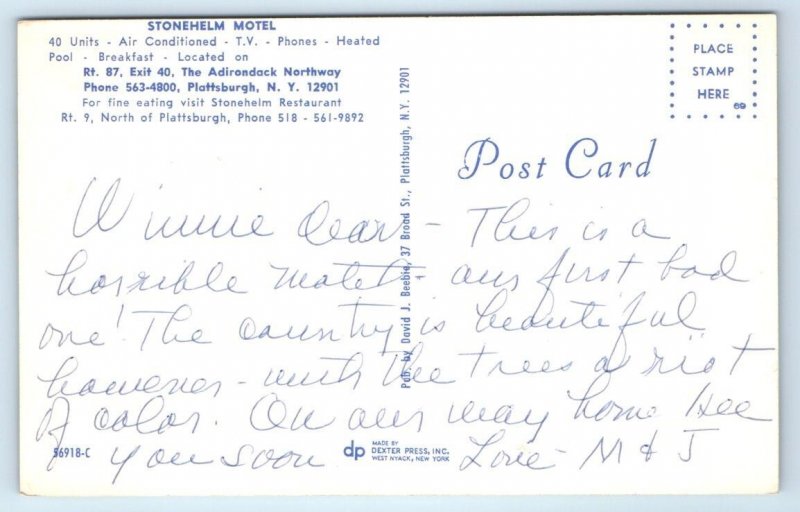 STONEHELM MOTEL
40 Units - Air Conditioned - T.V. - Phones - Heated
Pool - Breakfast - Located on
Rt. 87, Exit 40, The Adirondack Northway
Phone 563-4800, Plattsburgh, N. Y. 12901
For fine eating visit Stonehelm Restaurant
Rt. 9, North of Plattsburgh, Phone 518 - 561-9892
PLACE
STAMP
HERE
69
Post Card
Pub. by David J. Beebie, 37 Broad St., Plattsburgh, N.Y. 12901
Winnie Dear - This is a
horrible motel - our first bad
one! The country is beautiful
however - with the trees a riot
of color. On our way home. See
you soon Love - M & J
56918-C
dp MADE BY
DEXTER PRESS, INC.
WEST NYACK, NEW YORK